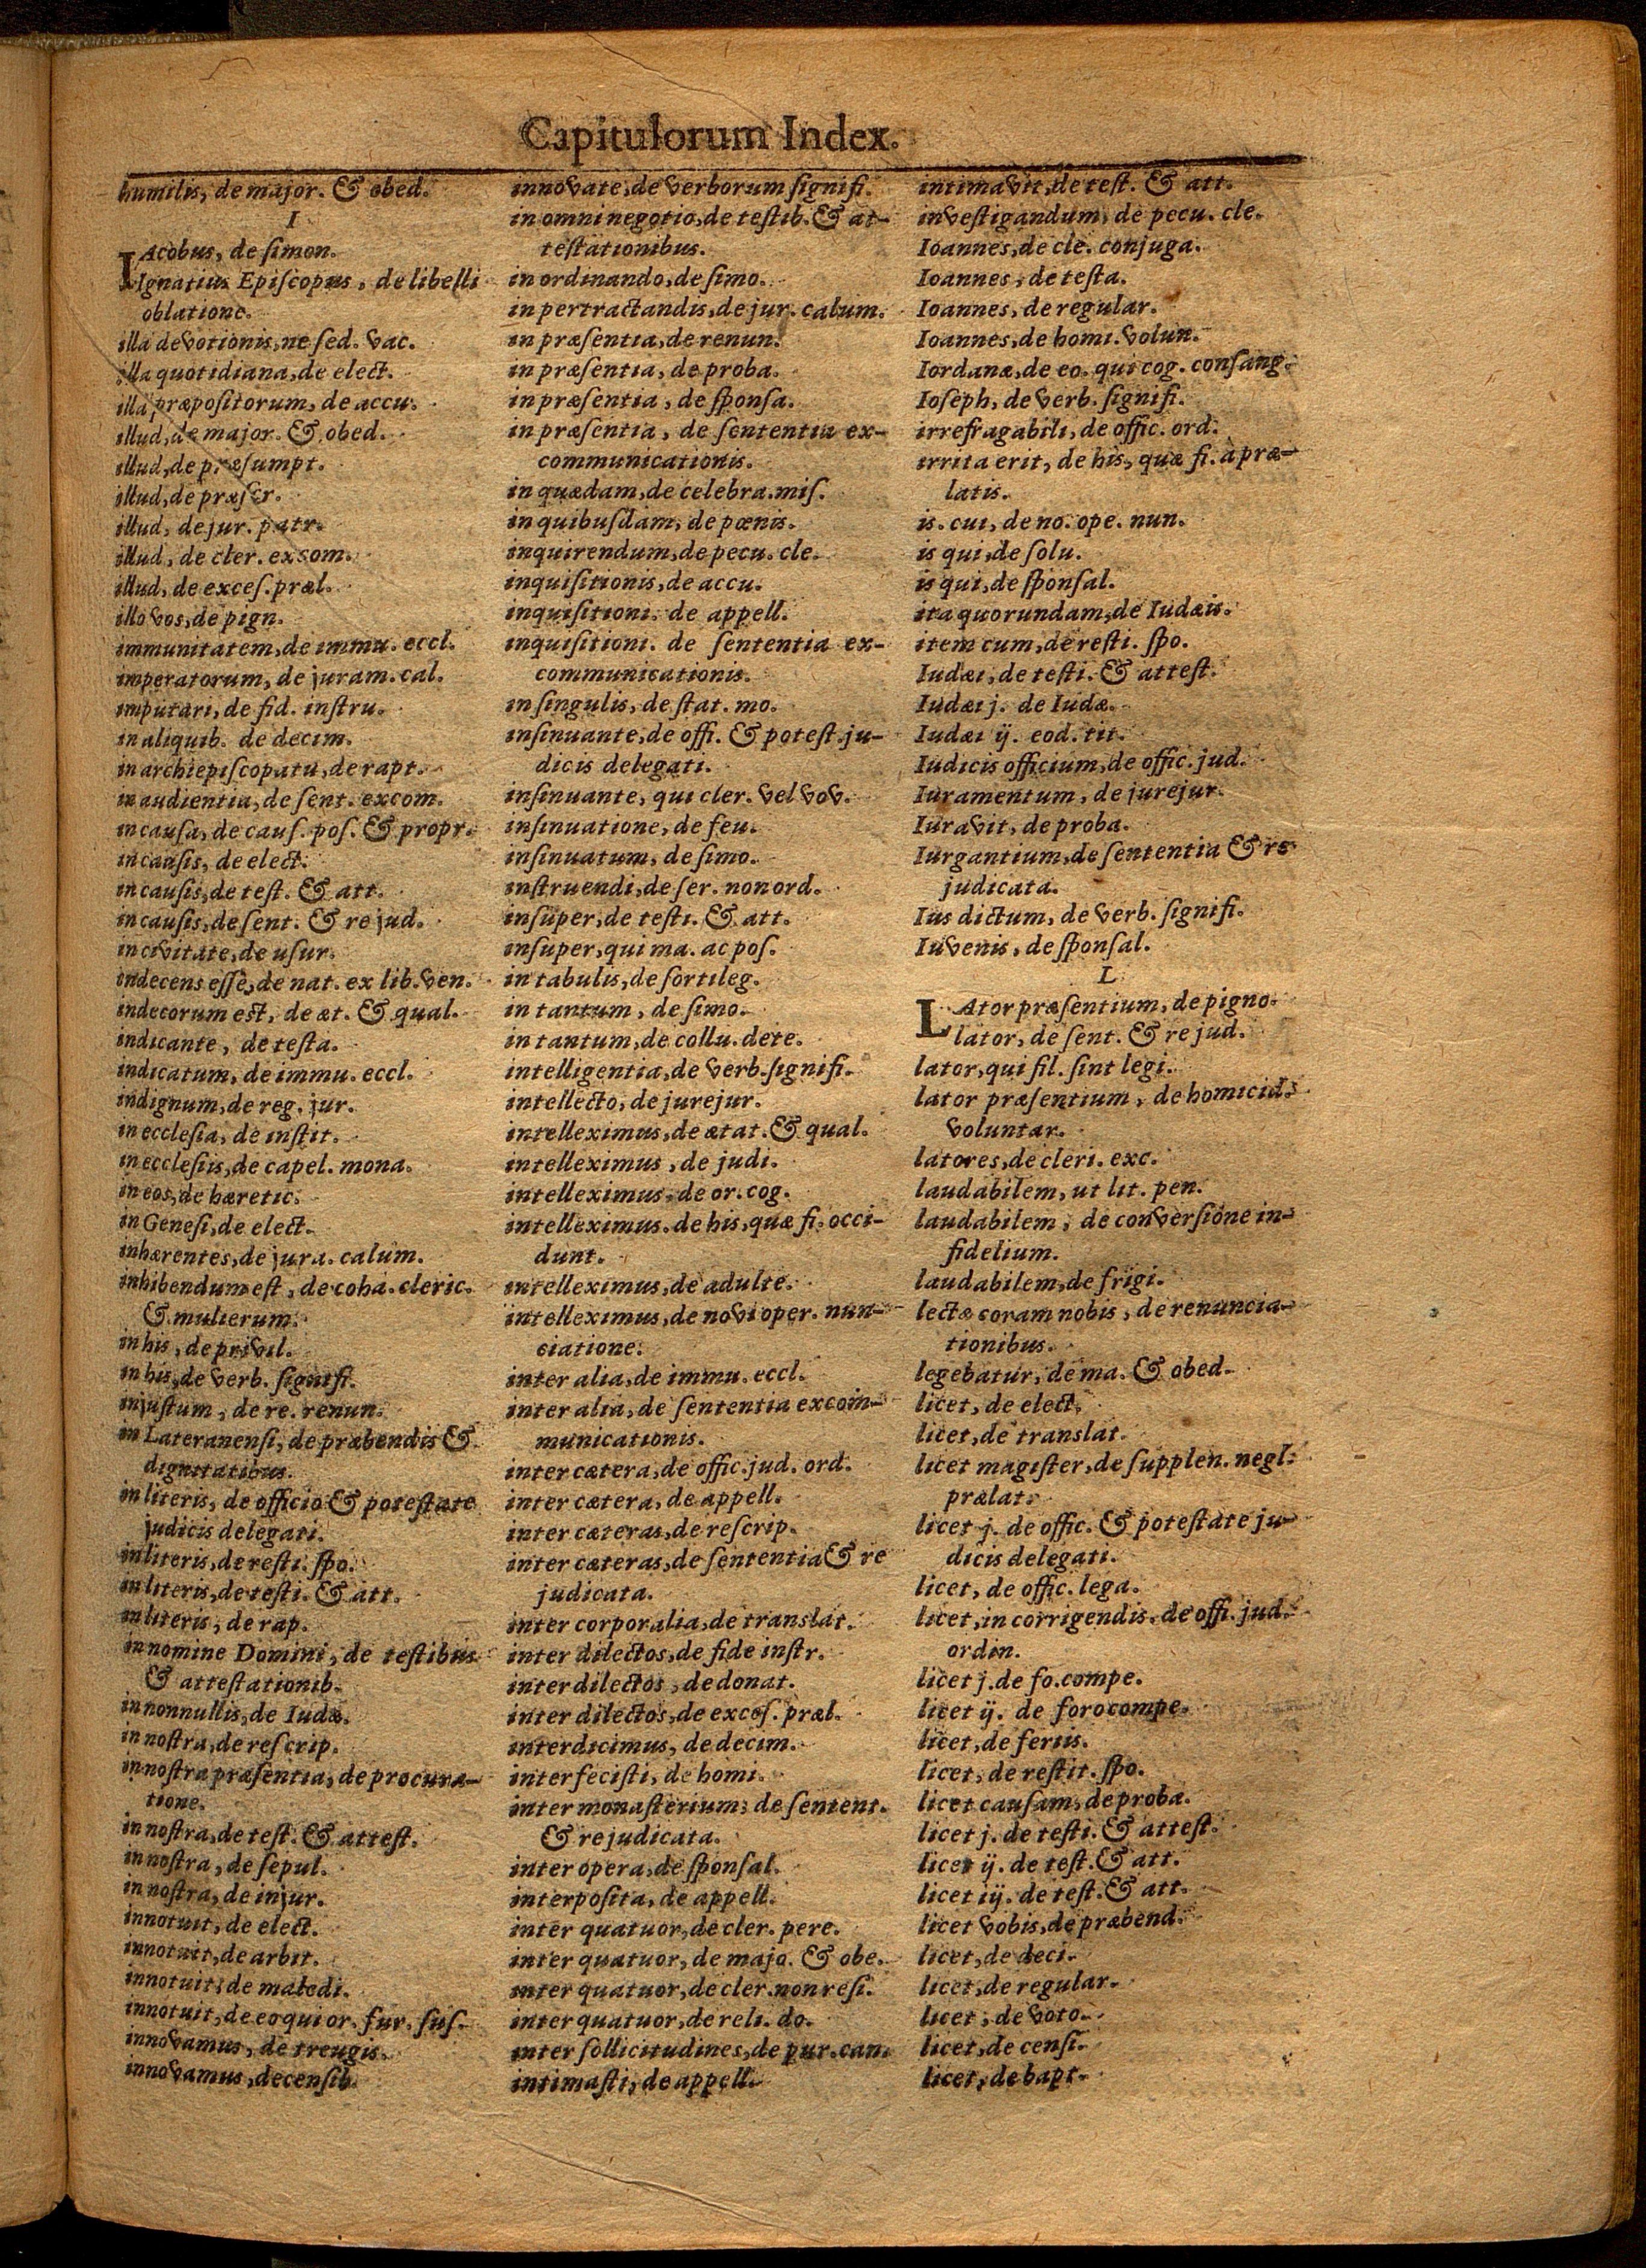 Capitulorum Index.
humilis, de major. & obed.
I
IAcobus, de simon.
Ignatius Episcopus, de libelli
oblatione.
illa devotionis, ne sed. vac.
illa quotidiana, de elect.
illa præpositorum, de accu.
illud, de major. & obed.
illud, de præsumpt.
illud, de præscr.
illud, de jur. patr.
illud, de cler. excom.
illud, de exces. præl.
illo vos, de pign.
immunitatem, de immu. eccl.
imperatorum, de juram. cal.
imputari, de fid. instru.
in aliquib. de decim.
in archiepiscopatu, de rapt.
in audientia, de sent. excom.
in causa, de caus. pos. & propr.
in causis, de elect.
in causis, de test. & att.
in causis, de sent. & re jud.
in civitate, de usur.
indecens esse, de nat. ex lib. ven.
indecorum est, de æt. & qual.
indicante, de testa.
indicatum, de immu. eccl.
indignum, de reg. jur.
in ecclesia, de instit.
in ecclesiis, de capel. mona.
in eos, de hæretic.
in Genesi, de elect.
inhærentes, de jura. calum.
inhibendum est, de coha. cleric.
& mulierum.
in his, de privil.
in his, de verb. signifi.
injustum, de re. renun.
in Lateranensi, de præbendis &
dignitatibus.
in literis, de officio & potestate
judicis delegati.
in literis, de resti. spo.
in literis, de testi. & att.
in literis, de rap.
in nomine Domini, de testibus
& attestationib.
in nonnullis, de Iudæ.
in nostra, de rescrip.
in nostra præsentia, de procura-
tione.
in nostra, de test. & attest.
in nostra, de sepul.
in nostra, de injur.
innotuit, de elect.
innotuit, de arbit.
innotuit, de maledi.
innotuit, de eo qui or. fur. sus.
innovamus, de treugis.
innovamus, de censib.
innovate, de verborum signifi.
in omni negotio, de testib. & at-
testationibus.
in ordinando, de simo.
in pertractandis, de jur. calum.
in præsentia, de renun.
in præsentia, de proba.
in præsentia, de sponsa.
in præsentia, de sententia ex-
communicationis.
in quædam, de celebra. mis.
in quibusdam, de pœnis.
inquirendum, de pecu. cle.
inquisitionis, de accu.
inquisitioni. de appell.
inquisitioni. de sententia ex-
communicationis.
in singulis, de stat. mo.
insinuante, de offi. & potest. ju-
dicis delegati.
insinuante, qui cler. vel vov.
insinuatione, de feu.
insinuatum, de simo.
instruendi, de ser. non ord.
insuper, de testi. & att.
insuper, qui ma. ac pos.
in tabulis, de sortileg.
in tantum, de simo.
in tantum, de collu. dete.
intelligentia, de verb. signifi.
intellecto, de jurejur.
intelleximus, de ætat. & qual.
intelleximus, de judi.
intelleximus, de or. cog.
intelleximus. de his, quæ fi. occi-
dunt.
intelleximus, de adulte.
intelleximus, de novi oper. nun-
ciatione.
inter alia, de immu. eccl.
inter alia, de sententia excom-
municationis.
inter cætera, de offic. jud. ord.
inter cætera, de appell.
inter cæteras, de rescrip.
inter cæteras, de sententia & re
judicata.
inter corporalia, de translat.
inter dilectos, de fide instr.
inter dilectos, de donat.
inter dilectos, de exces. præl.
interdicimus, de decim.
interfecisti, de homi.
inter monasterium, de sentent.
& re judicata.
inter opera, de sponsal.
interposita, de appell.
inter quatuor, de cler. pere.
inter quatuor, de majo. & obe.
inter quatuor, de cler. non resi.
inter quatuor, de reli. do.
inter sollicitudines, de pur. can.
intimasti, de appell.
intimavit, de test. & att.
investigandum, de pecu. cle.
Ioannes, de cle. conjuga.
Ioannes, de testa.
Ioannes, de regular.
Ioannes, de homi. volun.
Iordanæ, de eo. qui cog. consang.
Ioseph, de verb. signifi.
irrefragabili, de offic. ord.
irrita erit, de his, quæ fi. à præ-
latis.
is. cui, de no. ope. nun.
is qui, de solu.
is qui, de sponsal.
ita quorundam, de Iudæis.
item cum, de resti. spo.
Iudæi, de testi. & attest.
Iudæi j. de Iudæ.
Iudæi ij. eod. tit.
Iudicis officium, de offic. jud.
Iuramentum, de jurejur.
Iuravit, de proba.
Iurgantium, de sententia & re
judicata.
Ius dictum, de verb. signifi.
Iuvenis, de sponsal.
L
LAtor præsentium, de pigno.
lator, de sent. & re jud.
lator, qui fil. sint legi.
lator præsentium, de homicid.
voluntar.
latores, de cleri. exc.
laudabilem, ut lit. pen.
laudabilem, de conversione in-
fidelium.
laudabilem, de frigi.
lectæ coram nobis, de renuncia-
tionibus.
legebatur, de ma. & obed.
licet, de elect.
licet, de translat.
licet magister, de supplen. negl.
prælat.
licet j. de offic. & potestate ju-
dicis delegati.
licet, de offic. lega.
licet, in corrigendis, de offi. jud.
ordin.
licet j. de fo. compe.
licet ij. de foro compe.
licet, de feriis.
licet, de restit. spo.
licet causam, de proba.
licet j. de testi. & attest.
licet ij. de test. & att.
licet iij. de test. & att.
licet vobis, de præbend.
licet, de deci.
licet, de regular.
licet, de voto.
licet, de censi.
licet, de bapt.